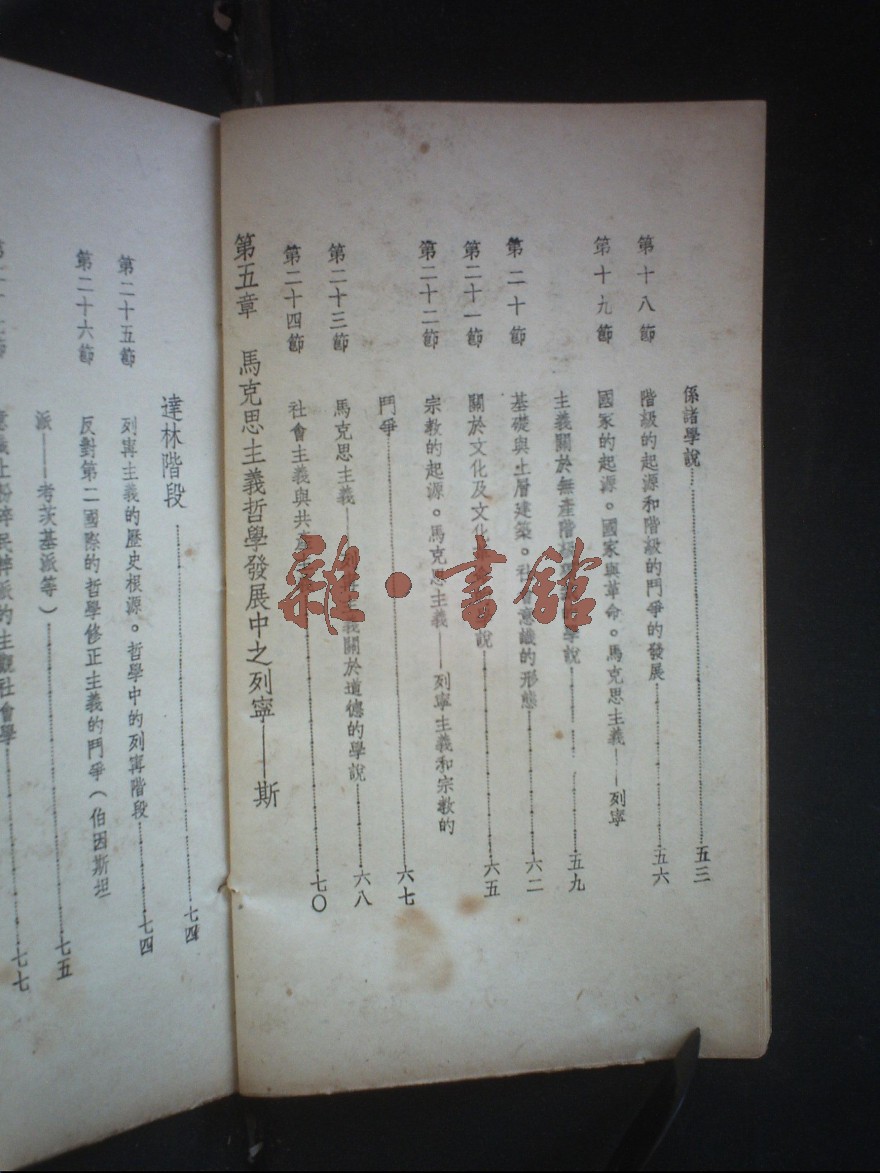 係諸學說……五三
第十八節 階級的起源和階級的鬥爭的發展……五六
第十九節 國家的起源。國家與革命。馬克思主義——列寧
主義關於無產階級……學說……五九
第二十節 基礎與上層建築。社會意識的形態……六二
第二十一節 關於文化及文化……說……六五
第二十二節 宗教的起源。馬克思主義——列寧主義和宗教的
鬥爭……六七
第二十三節 馬克思主義——列寧主義關於道德的學說……六八
第二十四節 社會主義與共產……七〇
第五章 馬克思主義哲學發展中之列寧——斯
達林階段……七四
第二十五節 列寧主義的歷史根源。哲學中的列寧階段……七四
第二十六節 反對第二國際的哲學修正主義的鬥爭(伯因斯坦
派——考茨基派等)……七五
粉碎民粹派的主觀社會學……七七
雜·書館